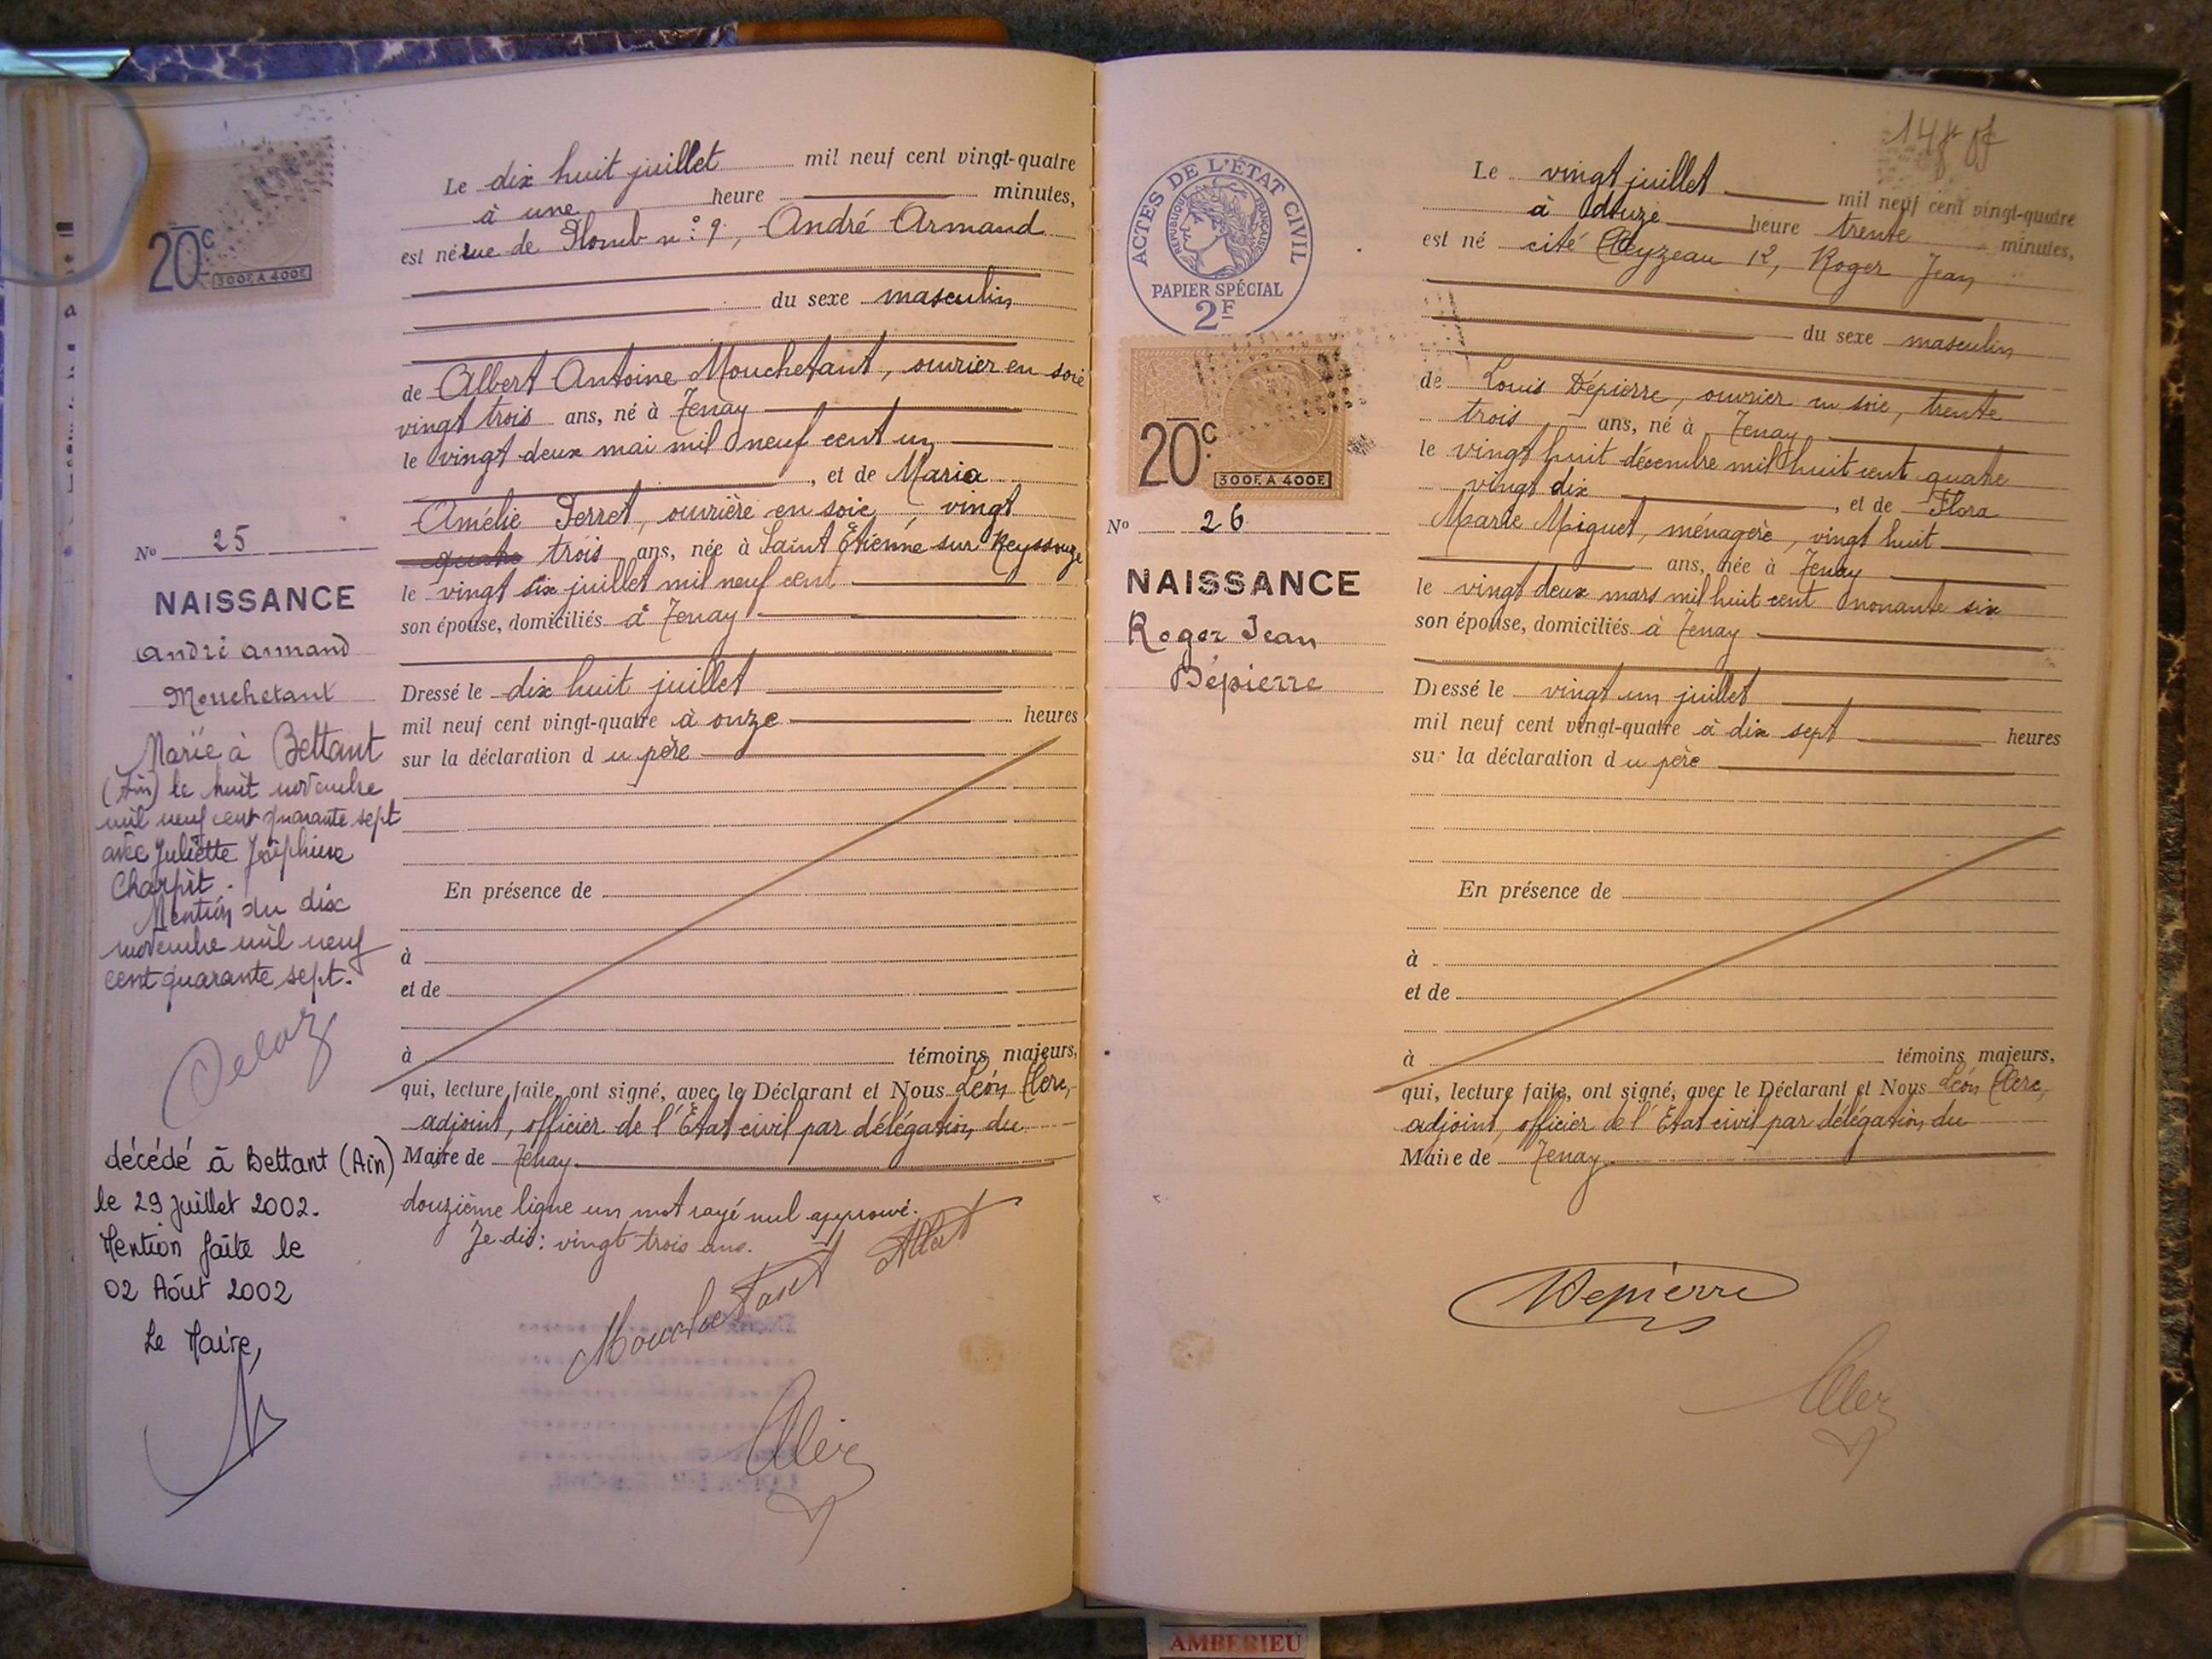 20c
300F. A 400F.
Nº 25
NAISSANCE
André Armand
Mouchetant
Marié à Bettant
(Ain) le huit novembre
mil neuf cent quarante sept
avec Juliette Joséphine
Charpit.
Mention du dix
novembre mil neuf
cent quarante sept.
décédé à Bettant (Ain)
le 29 Juillet 2002.
Mention faite le
02 Août 2002
Le Maire,
Le dix huit juillet mil neuf cent vingt-quatre
à une heure minutes,
est né rue de Plomb nº 9, André Armand
du sexe masculin
de Albert Antoine Mouchetant, ouvrier en soie
vingt trois ans, né à Tenay
le vingt deux mai mil neuf cent un
, et de Maria
Amélie Perret, ouvrière en soie, vingt
quatre trois ans, née à Saint Étienne sur Reyssouze
le vingt six juillet mil neuf cent
son épouse, domiciliés à Tenay
Dressé le dix huit juillet
mil neuf cent vingt-quatre à onze heures
sur la déclaration du père
En présence de
à
et de
à témoins majeurs,
qui, lecture faite, ont signé, avec le Déclarant et Nous Léon Clerc,
adjoint, officier de l'État civil par délégation du
Maire de Tenay
douzième ligne un mot rayé nul approuvé.
Je dis: vingt trois ans.
Mouchetant Albert
Clerc
ACTES DE L'ÉTAT CIVIL
RÉPUBLIQUE FRANÇAISE
PAPIER SPÉCIAL
2F
20c
300F. A 400F.
Nº 26
NAISSANCE
Roger Jean
Dépierre
Le vingt juillet mil neuf cent vingt-quatre
à douze heure trente minutes,
est né cité 12, Roger Jean
du sexe masculin
de Louis Dépierre, ouvrier en soie, trente
trois ans, né à Tenay
le vingt huit décembre mil huit cent quatre
vingt dix , et de Flora
Marie Miguet, ménagère, vingt huit
ans, née à Tenay
le vingt deux mars mil huit cent nonante six
son épouse, domiciliés à Tenay
Dressé le vingt un juillet
mil neuf cent vingt-quatre à dix sept heures
sur la déclaration du père
En présence de
à
et de
à témoins majeurs,
qui, lecture faite, ont signé, avec le Déclarant et Nous Léon Clerc,
adjoint, officier de l'État civil par délégation du
Maire de Tenay
Depierre
Clerc
AMBERIEU